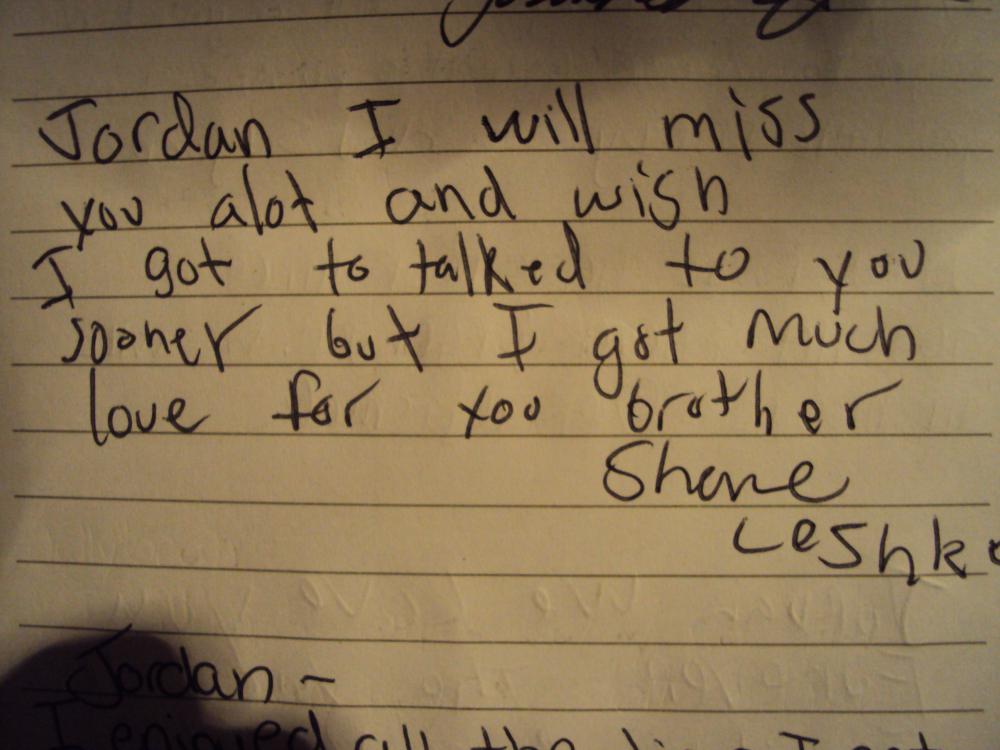 Jordan I will miss
you alot and wish
I got to talked to you
sooner but I got much
love for you brother
Shane
Leshk
Jordan -
I enjoyed all the